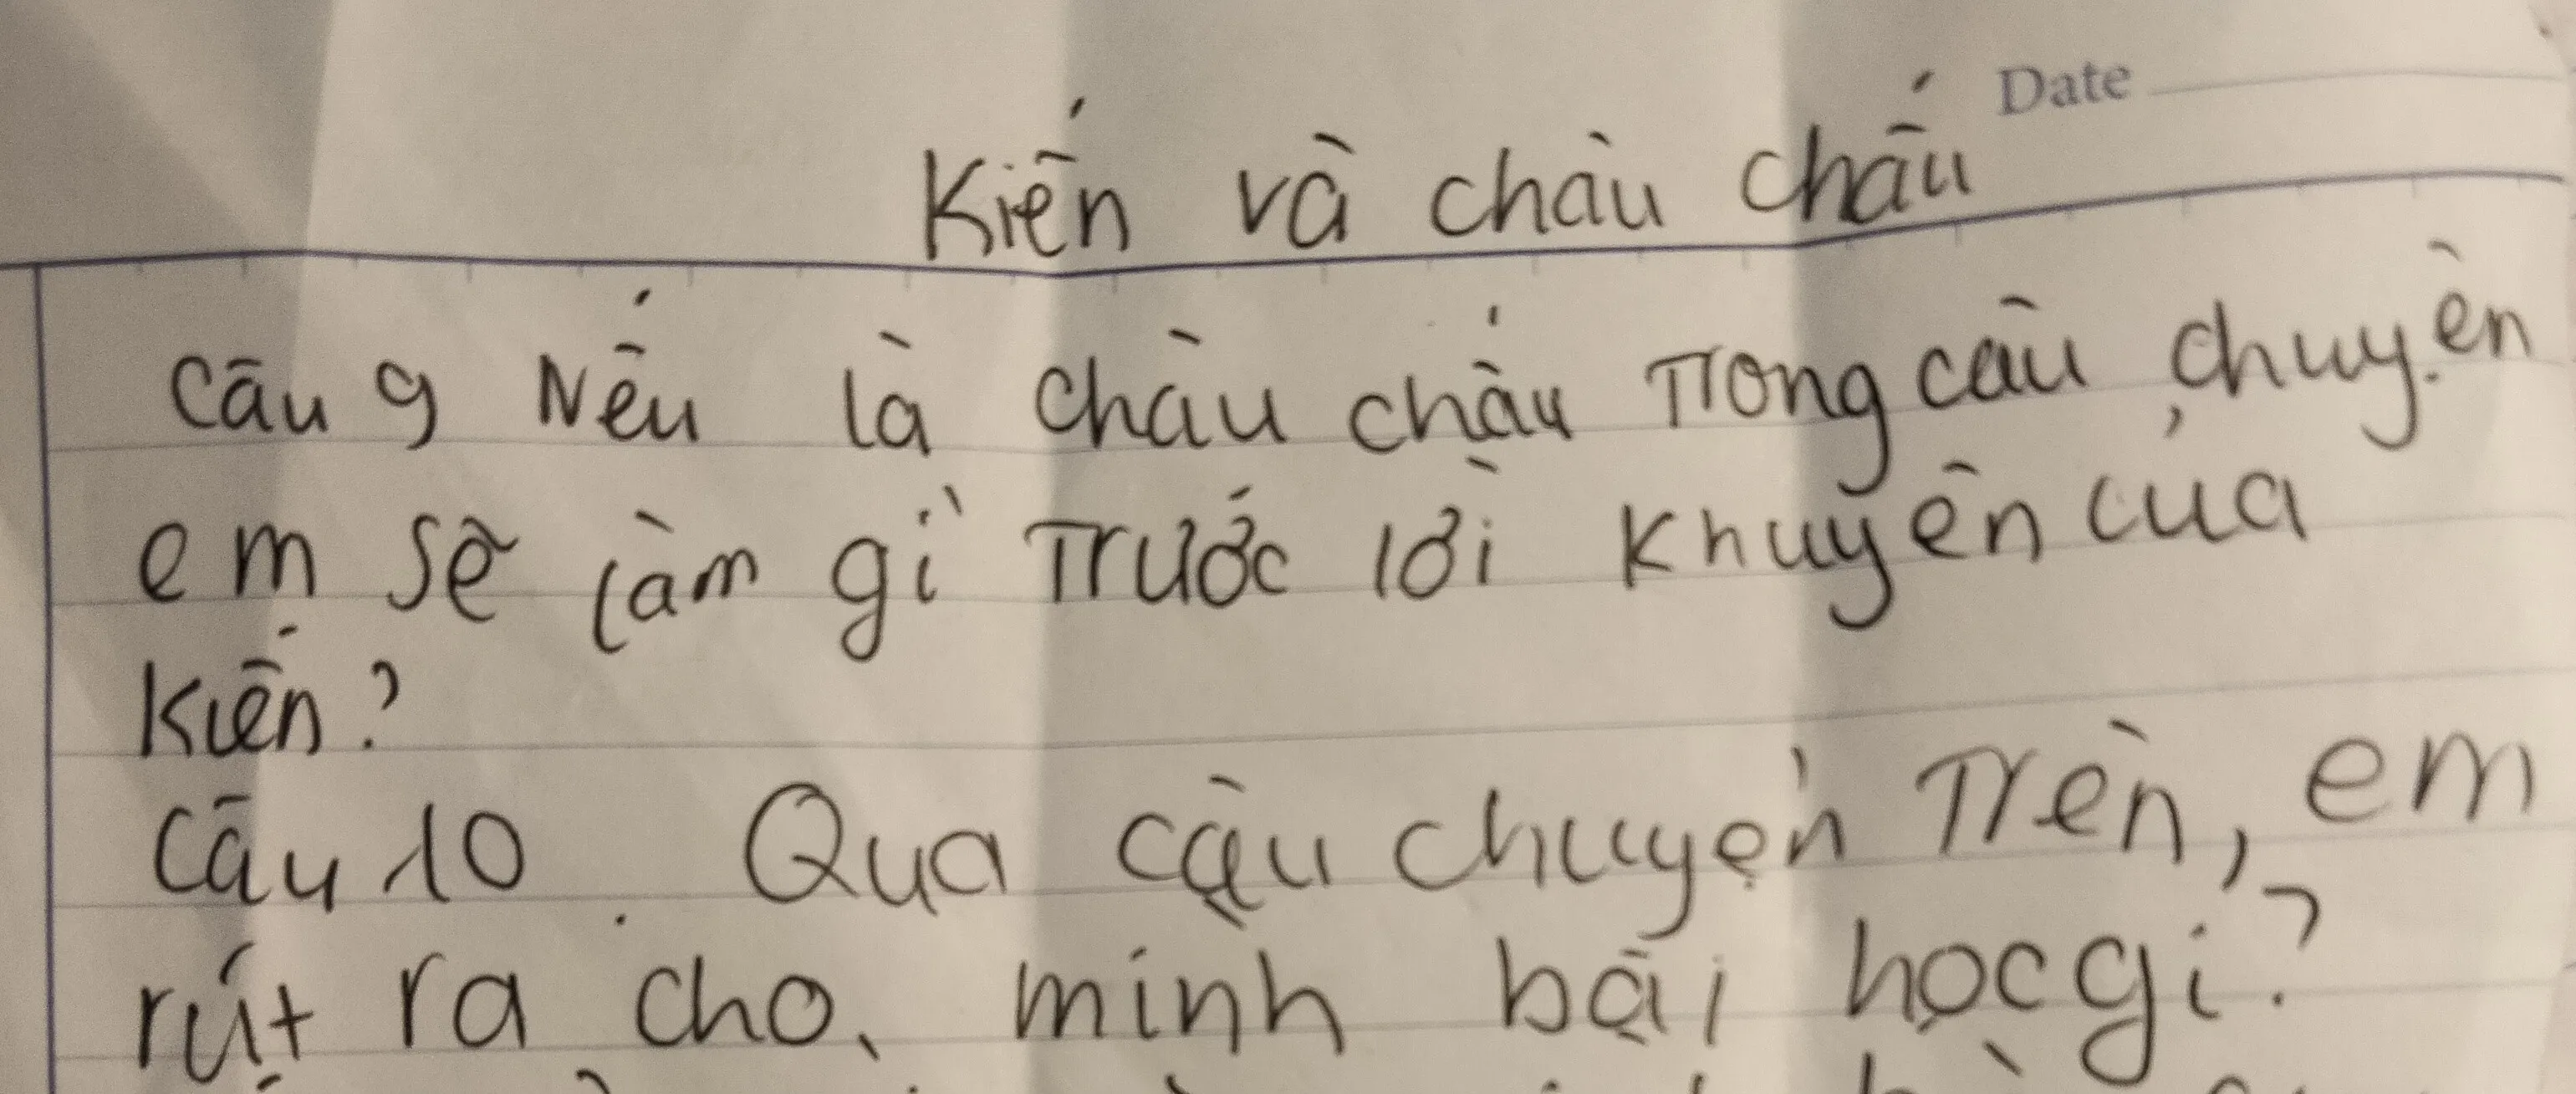 Date
Kiến và châu chấu
Câu 9 Nếu là châu chấu trong câu chuyện
em sẽ làm gì trước lời khuyên của
Kiến?
Câu 10. Qua câu chuyện trên, em
rút ra cho mình bài học gì?